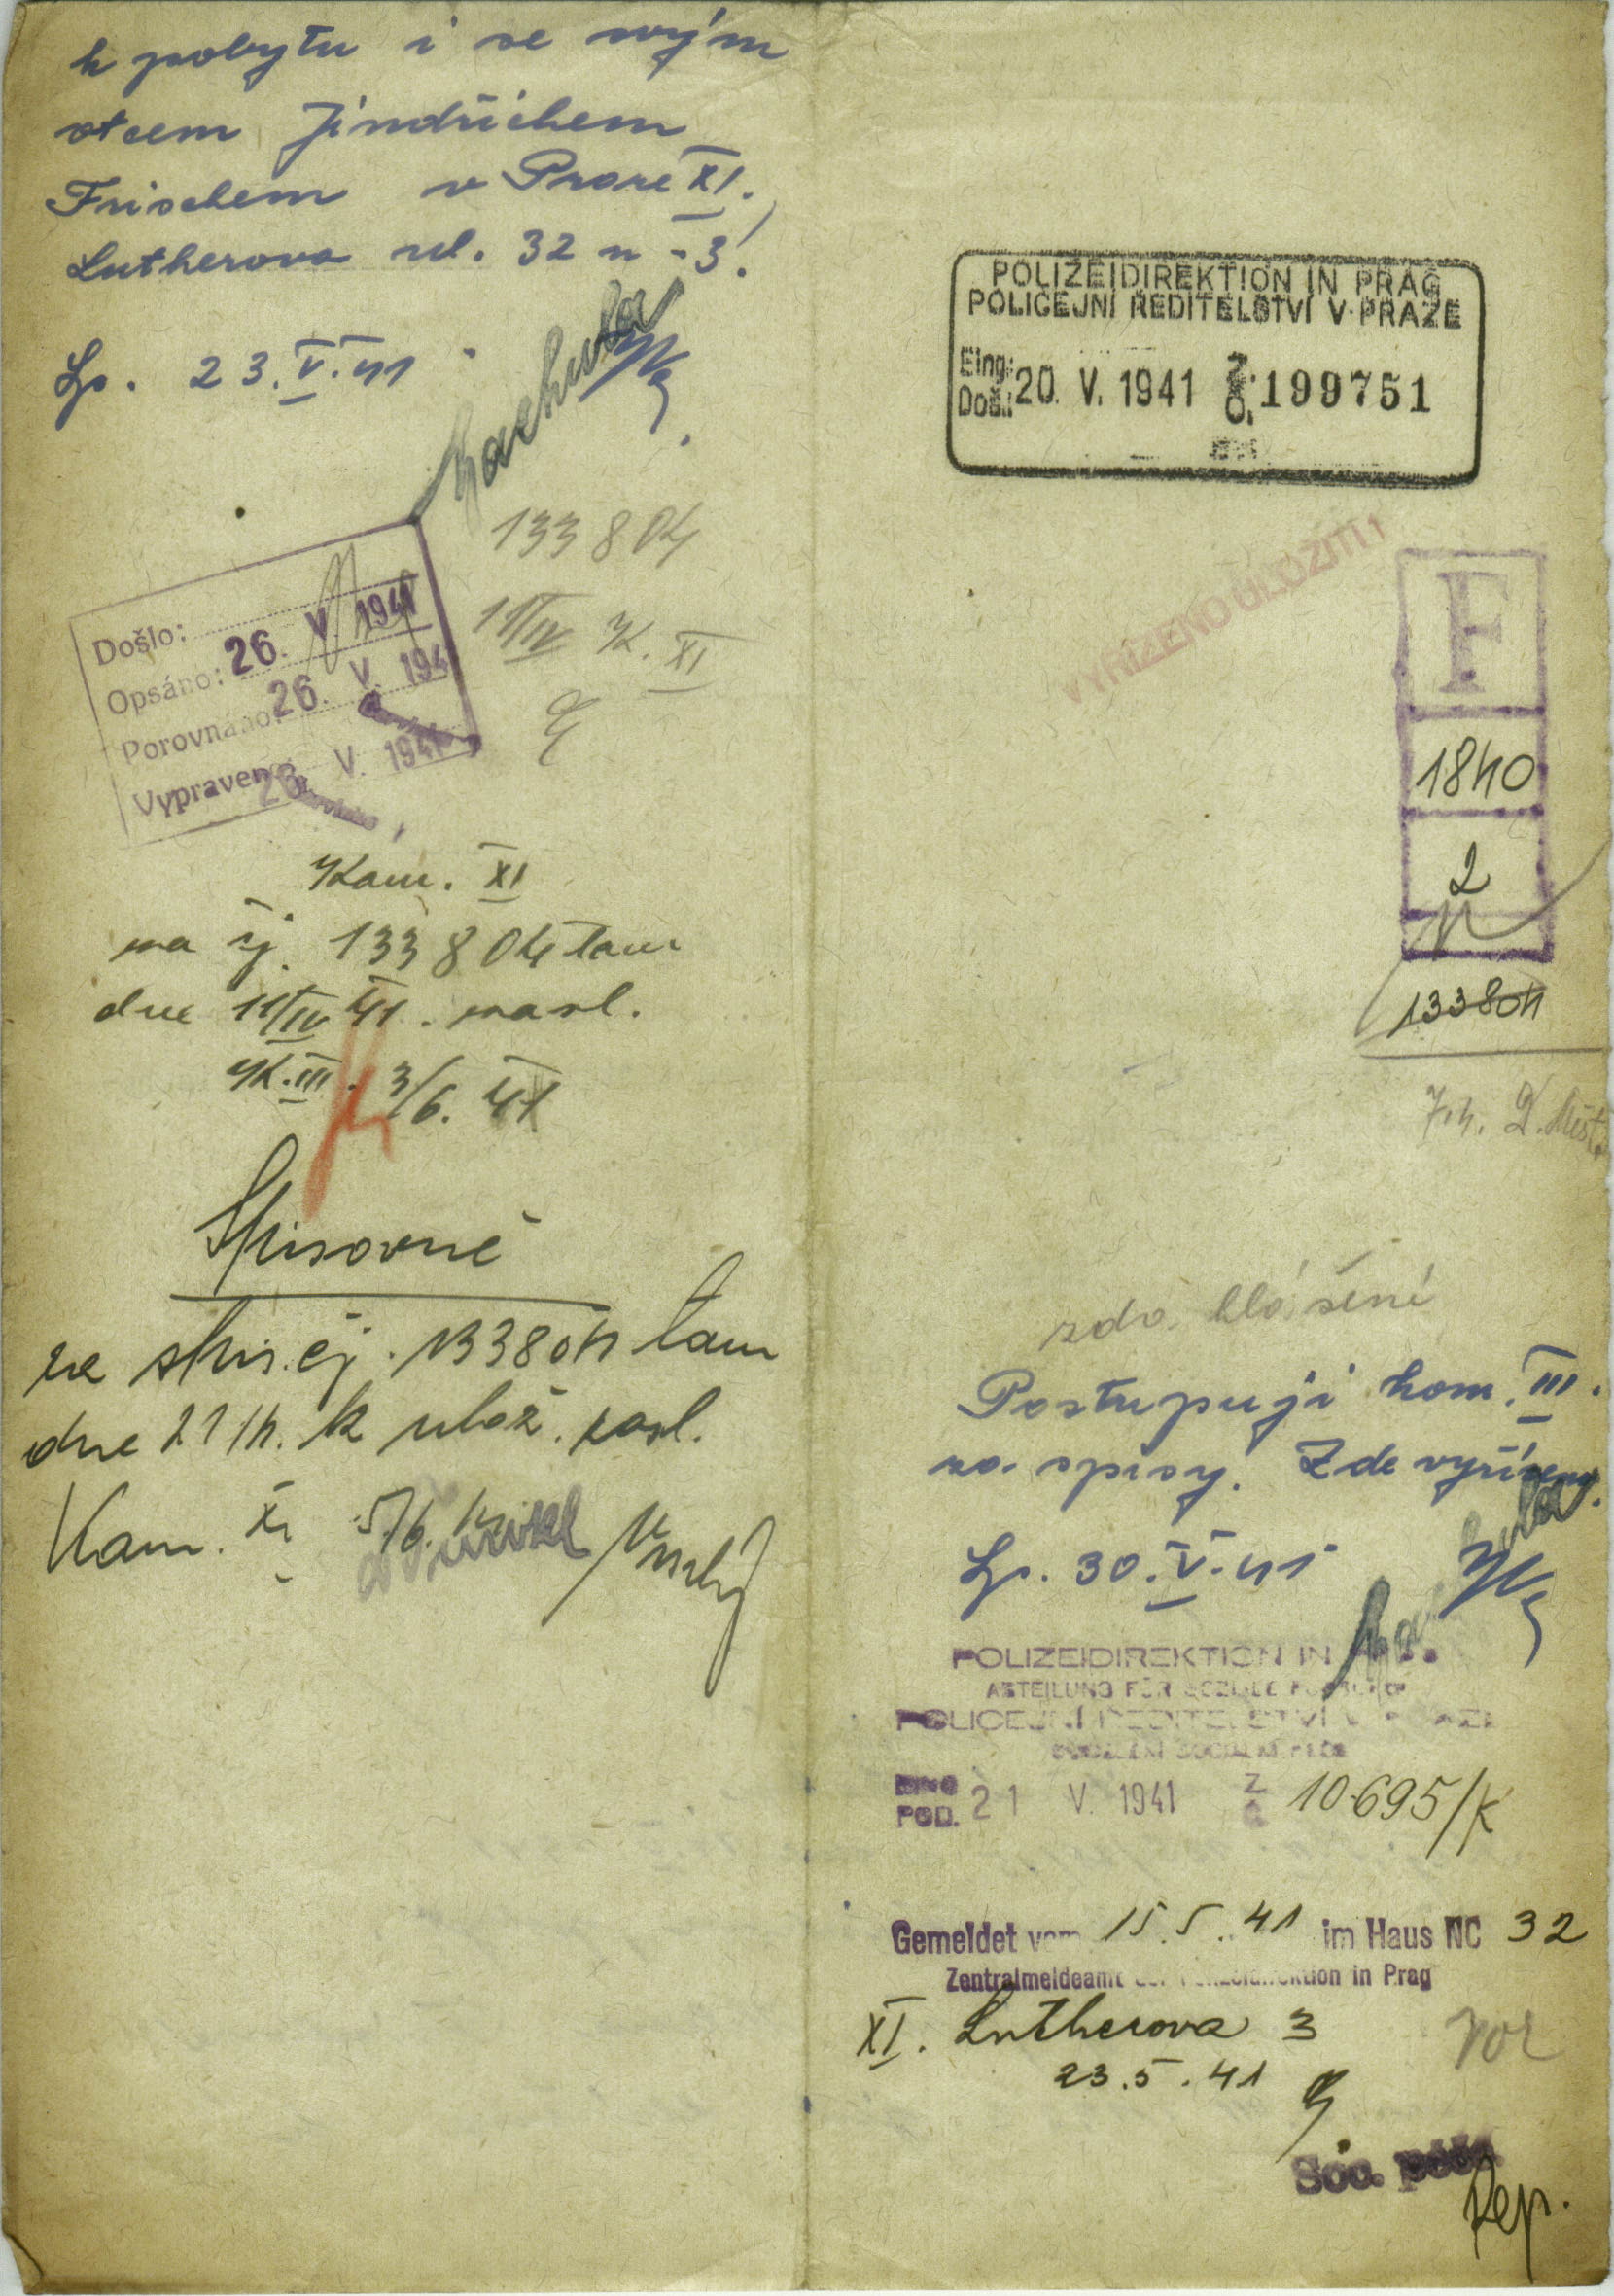 k pobytu i se svým
otcem Jindřichem
Frischem v Praze XI.
Lutherova ul. 32 n - 3!
23. V. 41
133804
11/IV K. XI
Došlo:
Opsáno: 26. V. 1941
Porovnáno: 26. V. 1941
Vypraveno: 26. V. 1941
Kam. XI
na čj. 133804 tam
dne 11/IV 41. zasl.
K. III. 3/6. 41
Spisovně
ze spis. čj. 133804 tam
dne 21/4. k ulož. zasl.
Kam. XI 5/6.
POLIZEIDIREKTION IN PRAG
POLICEJNÍ ŘEDITELSTVÍ V PRAZE
Eing:
Doš.: 20. V. 1941 Z. Č. 199751
VYŘÍZENO ULOŽITI!
F
1840
2
133804
zda hlášení
Postupuji kom. III.
za spisy. Zde vyřízeny.
30. V. 41
POLIZEIDIREKTION IN
ABTEILUNG FÜR SOZIALE FÜRSORGE
POLICEJNÍ ŘEDITELSTVÍ V PRAZE
ODDĚLENÍ SOCIÁLNÍ PÉČE
EING
POD. 21 V. 1941 Z Č 10695/K
Gemeldet vom 15. 5. 41 im Haus NC 32
Zentralmeldeamt der Polizeidirektion in Prag
XI. Lutherova 3
23. 5. 41
Soc. péče
Rep.